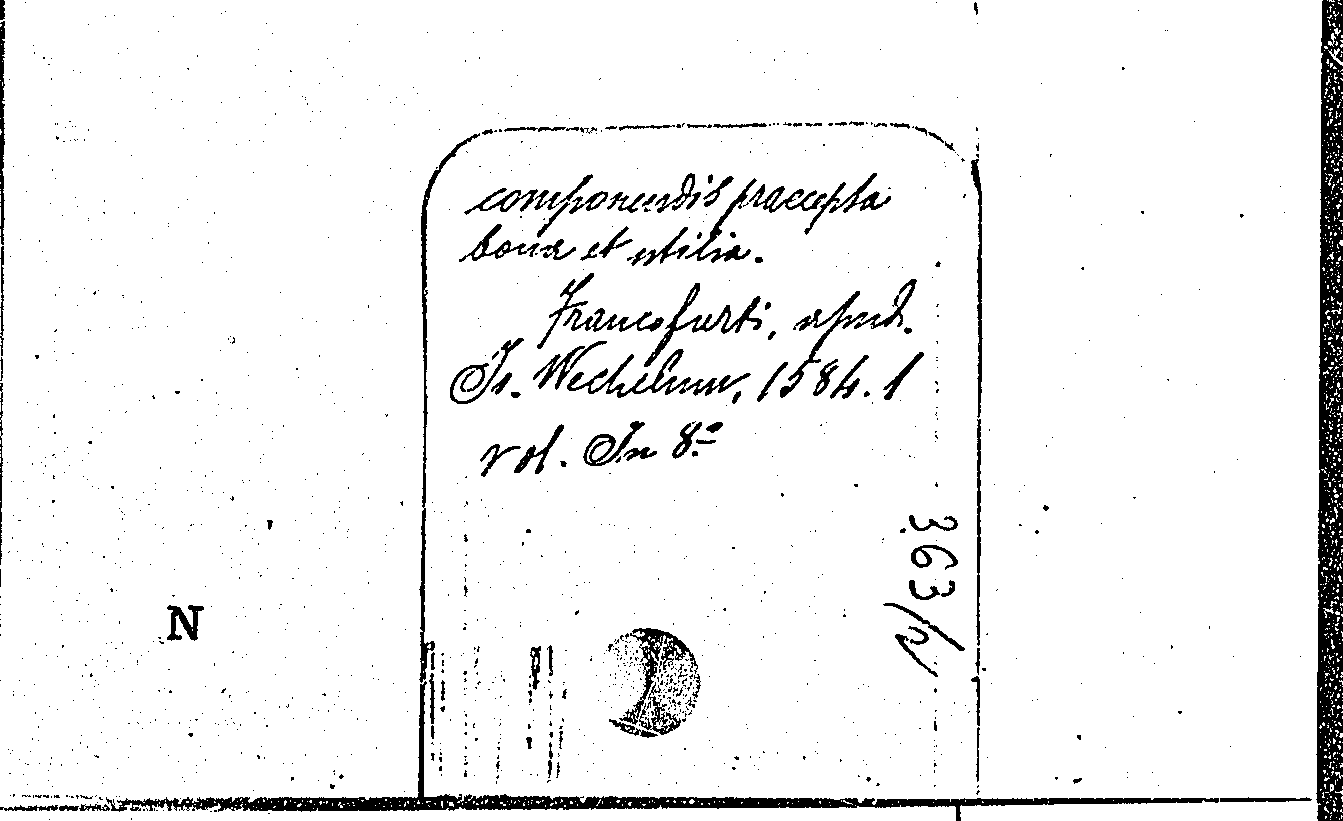 componendis praecepta
bona et utilia.
Francofurti, apud.
In. Wechelum, 1584. 1
vol. In 8º
363/2
N